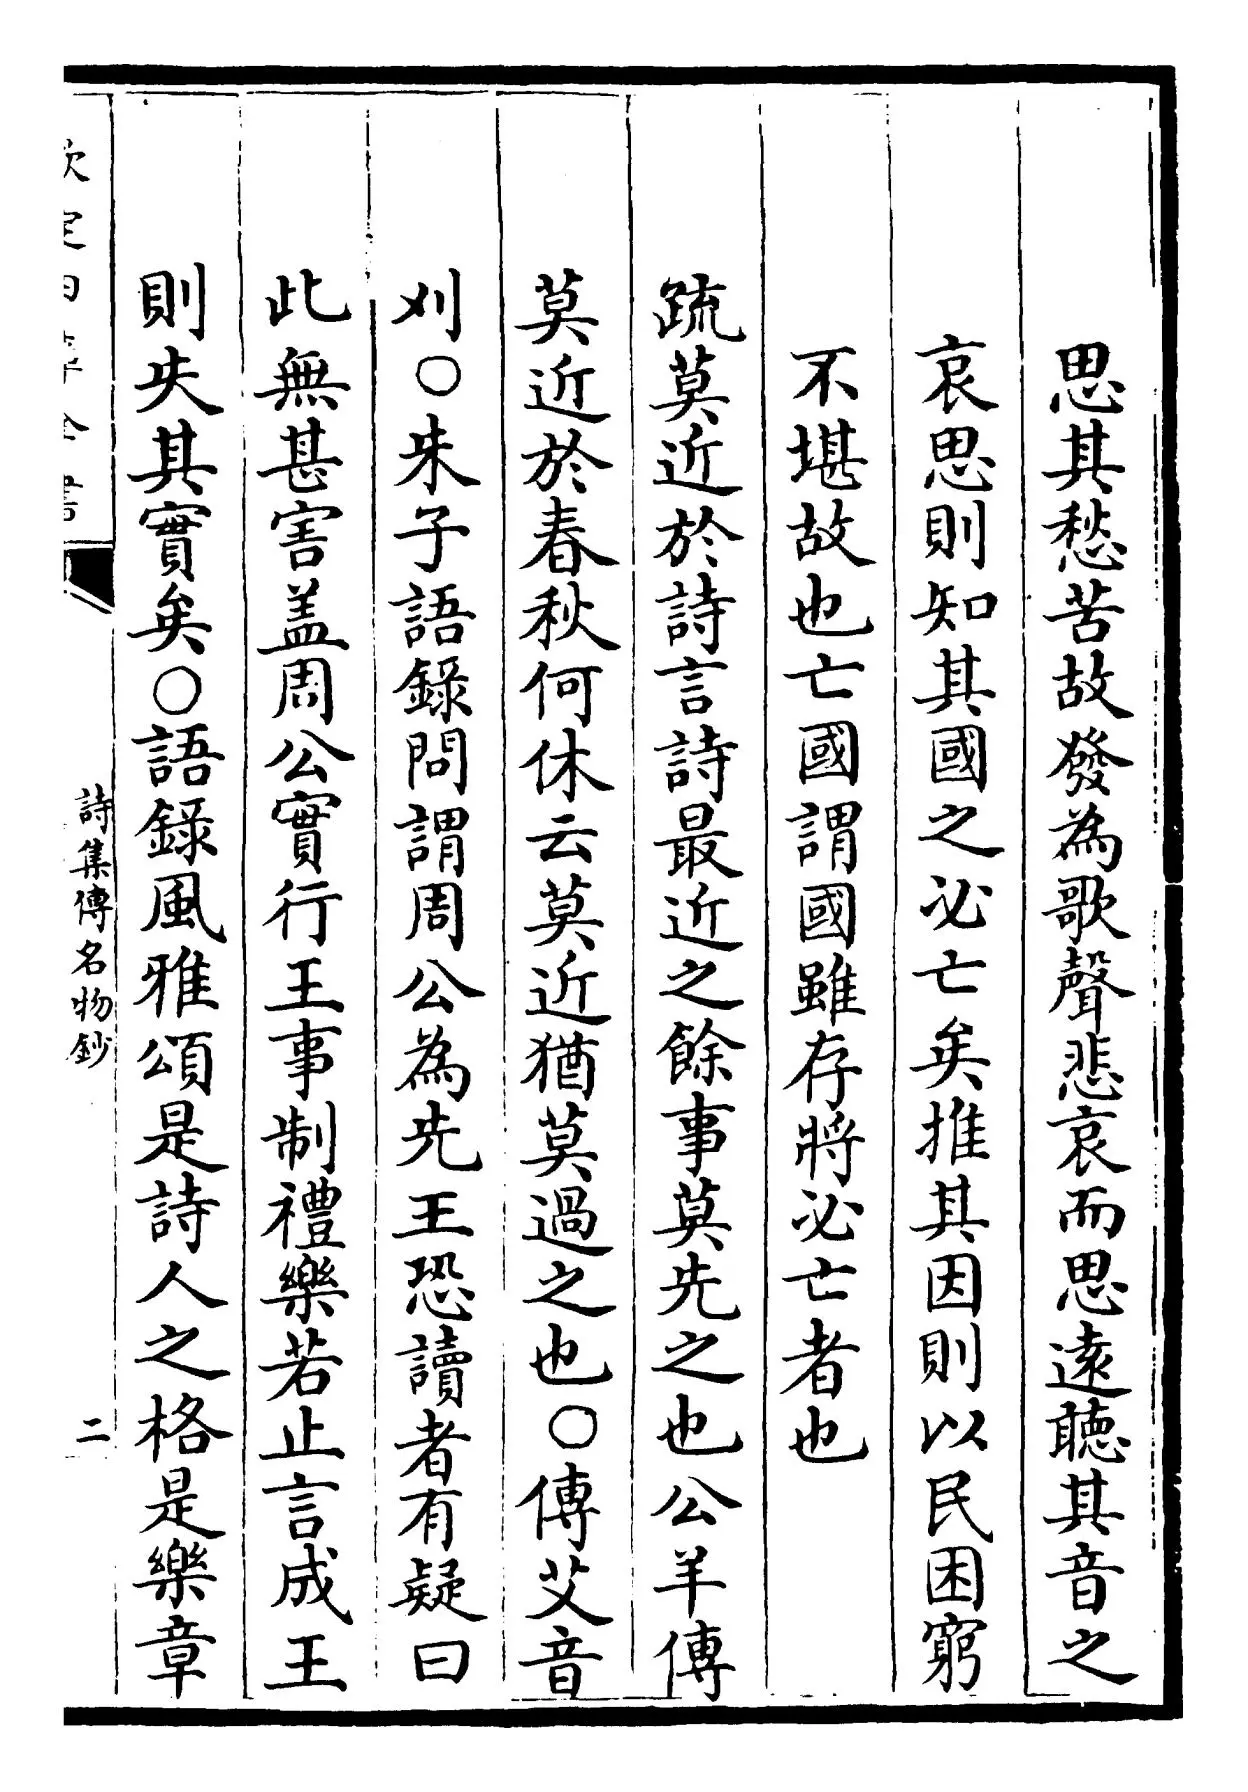 思其愁苦故發為歌聲悲哀而思遠聽其音之
哀思則知其國之必亡矣推其因則以民困窮
不堪故也亡國謂國雖存將必亡者也
䟽莫近於詩言詩最近之餘事莫先之也公羊傳
莫近於春秋何休云莫近猶莫過之也○傳艾音
刈○朱子語錄問謂周公為先王恐讀者有疑曰
此無甚害盖周公實行王事制禮樂若止言成王
則失其實矣○語錄風雅頌是詩人之格是樂章
欽定四庫全書
詩集傳名物鈔
二